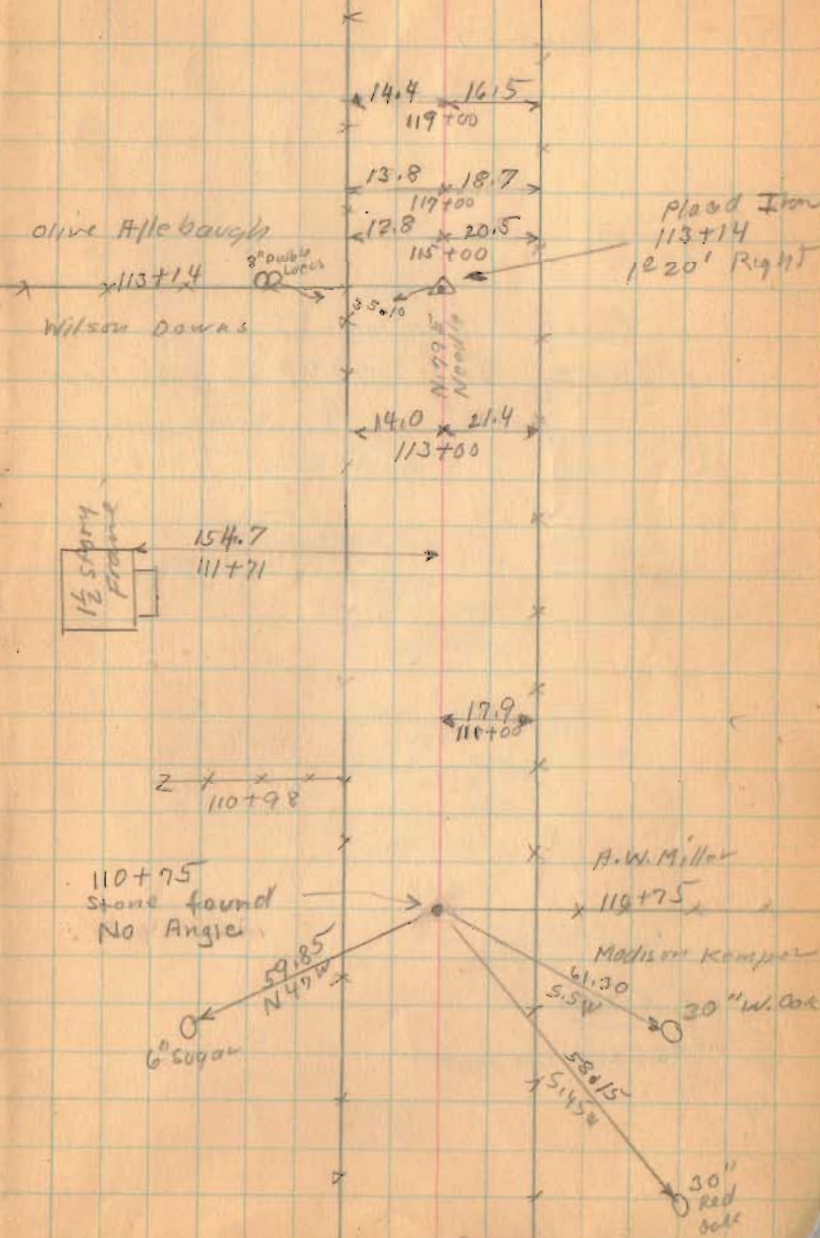 14.4 16.5
119+00
13.8 18.7
117+00
12.8 20.5
115+00
Placed Iron
113+14
1° 20' Right
Olive Allebaugh
113+14
8" Double
Locus
35.10
Wilson Downs
N.79E
Needle
14.0 21.4
113+00
1½ Story
Frame
154.7
111+71
17.9
111+00
110+98
110+75
Stone found
No Angle
A.W. Miller
110+75
Madison Kemper
59.85
N47W
6" Sugar
61.30
S.5W
30" W. Oak
58.15
S.45W
30"
Red
Oak